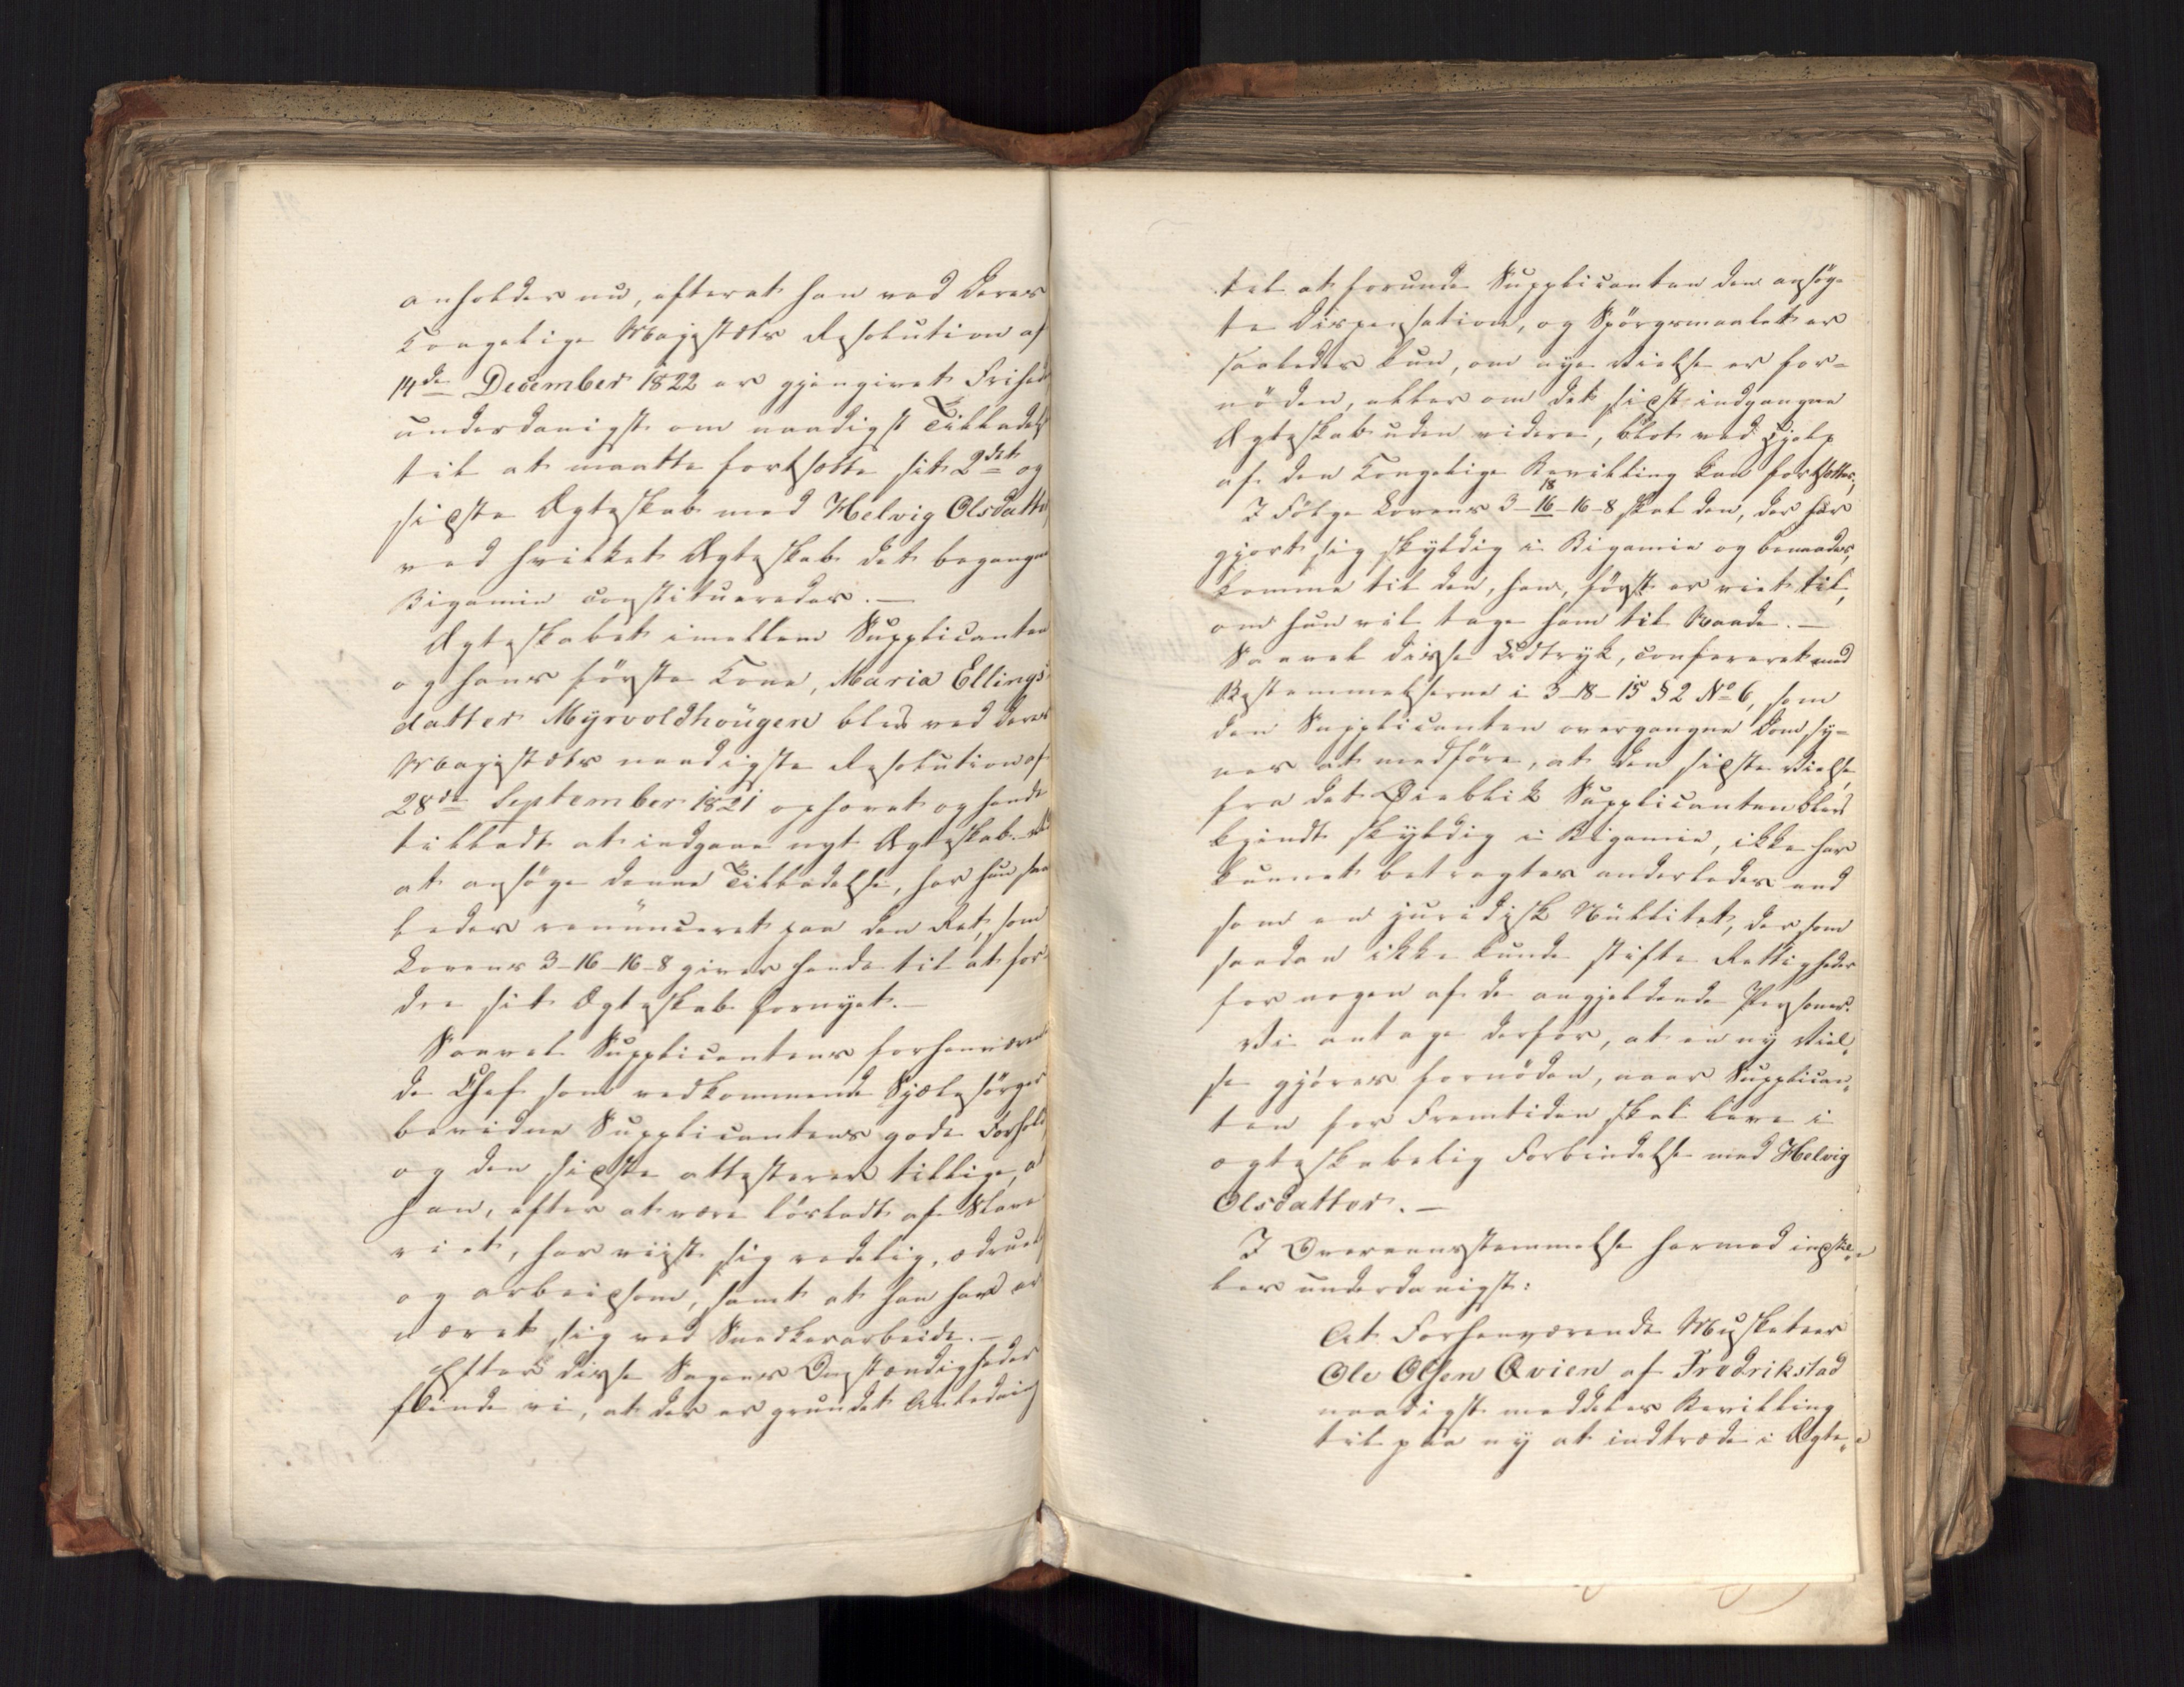 anholder nu, efterat han ved Deres
Kongelige Majestæts Resolution af
14de December 1822 er gjengivet Frihed
underdanigst om naadigst Tilladelse
til at maatte fortsætte sit 2det og
sidste Ægteskab med Helvig Olsdatter
ved hvilket Ægteskab det begangne
Bigamie constitueredes.—
Ægteskabet imellem Supplicanten
og hans første Kone, Maria Ellings-
datter Myrvoldhougen blev ved Deres
Majestæts naadigste Resolution af
28de September 1821 ophævet og hende
tilladt at indgaae nyt Ægteskab. Ved
at ansøge denne Tilladelse, har hun saa
ledes renunceret paa den Ret, som
Lovens 3-16-16-8 giver hende til at for-
dre sit Ægteskab fornyet.—
Saavel Supplicantens forhenværen
de Chef som vedkommende Sjælesørger
bevidne Supplicantens gode Forhold,
og den sidste attesterer tillige, at
han, efter at være løsladt af Slave
riet, har viist sig redelig, ædruelig
og arbeidsom, samt at han har er
næret sig ved Snedkerarbeide.—
Efter disse Sagens Omstændigheder
finde vi, at der er grundet Anledning
til at forunde Supplicanten den ansøg-
te Dispensation, og Spörgsmaalet er
saaledes kun, om nye Vielse er for-
nöden, eller om det sidst indgangne
Ægteskab uden videre, blot ved Hjelp
af den Kongelige Bevilling kan fortsættes.
I Følge Lovens 3-16-16-8 skal den, der har
18
gjort sig skyldig i Bigamie og benaades,
komme til den, han, først er viet til,
om hun vil tage ham til Naade.—
Saavel disse Udtryk, confereret med
Bestemmelserne i 3-18-15 § 2 No 6, som
den Supplicanten overgangne Dom, sy-
nes at medføre, at den sidste Vielse,
fra det Øieblik Supplicanten blev
kjendt skyldig i Bigamie, ikke har
kunnet betragtes anderledes end
som en juridisk Nullitet, der som
saadan ikke kunde stifte Rettigheder
for nogen af de angjeldende Personer.
Vi antage derfor, at en ny Viel-
se gjøres fornöden, naar Supplican-
ten for Fremtiden skal leve i
ægteskabelig Forbindelse med Helvig
Olsdatter.—
I Overeensstemmelse hermed indstil-
les underdanigst:
At Forhenværende Musketeer
Ole Olsen Qvien af Fredrikstad
naadigst meddeles Bevilling
til paa ny at indtræde i Ægte-